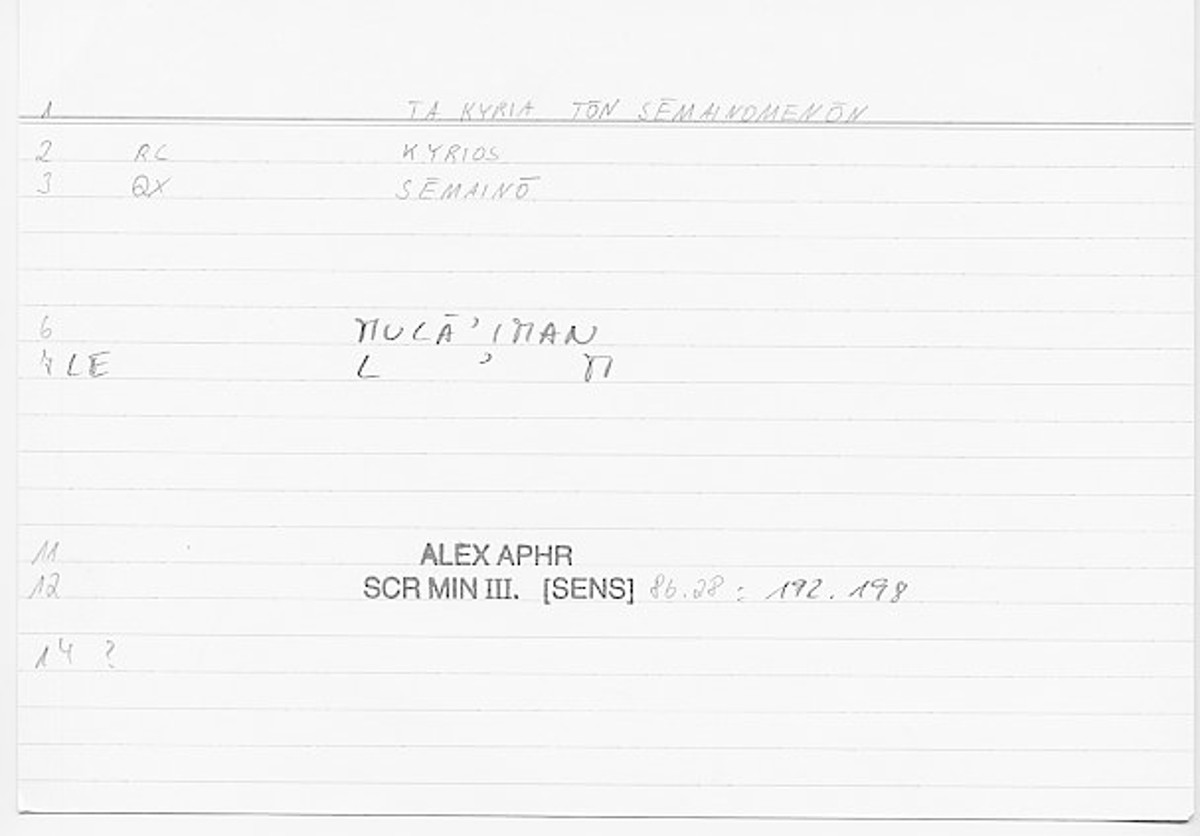 1 TA KYRIA TŌN SĒMAINOMENŌN
2 RC KYRIOS
3 QX SĒMAINŌ
6 MULĀʾIMAN
7 LE L ʾ M
11 ALEX APHR
12 SCR MIN III. [SENS] 86.28 : 192.198
14 ?